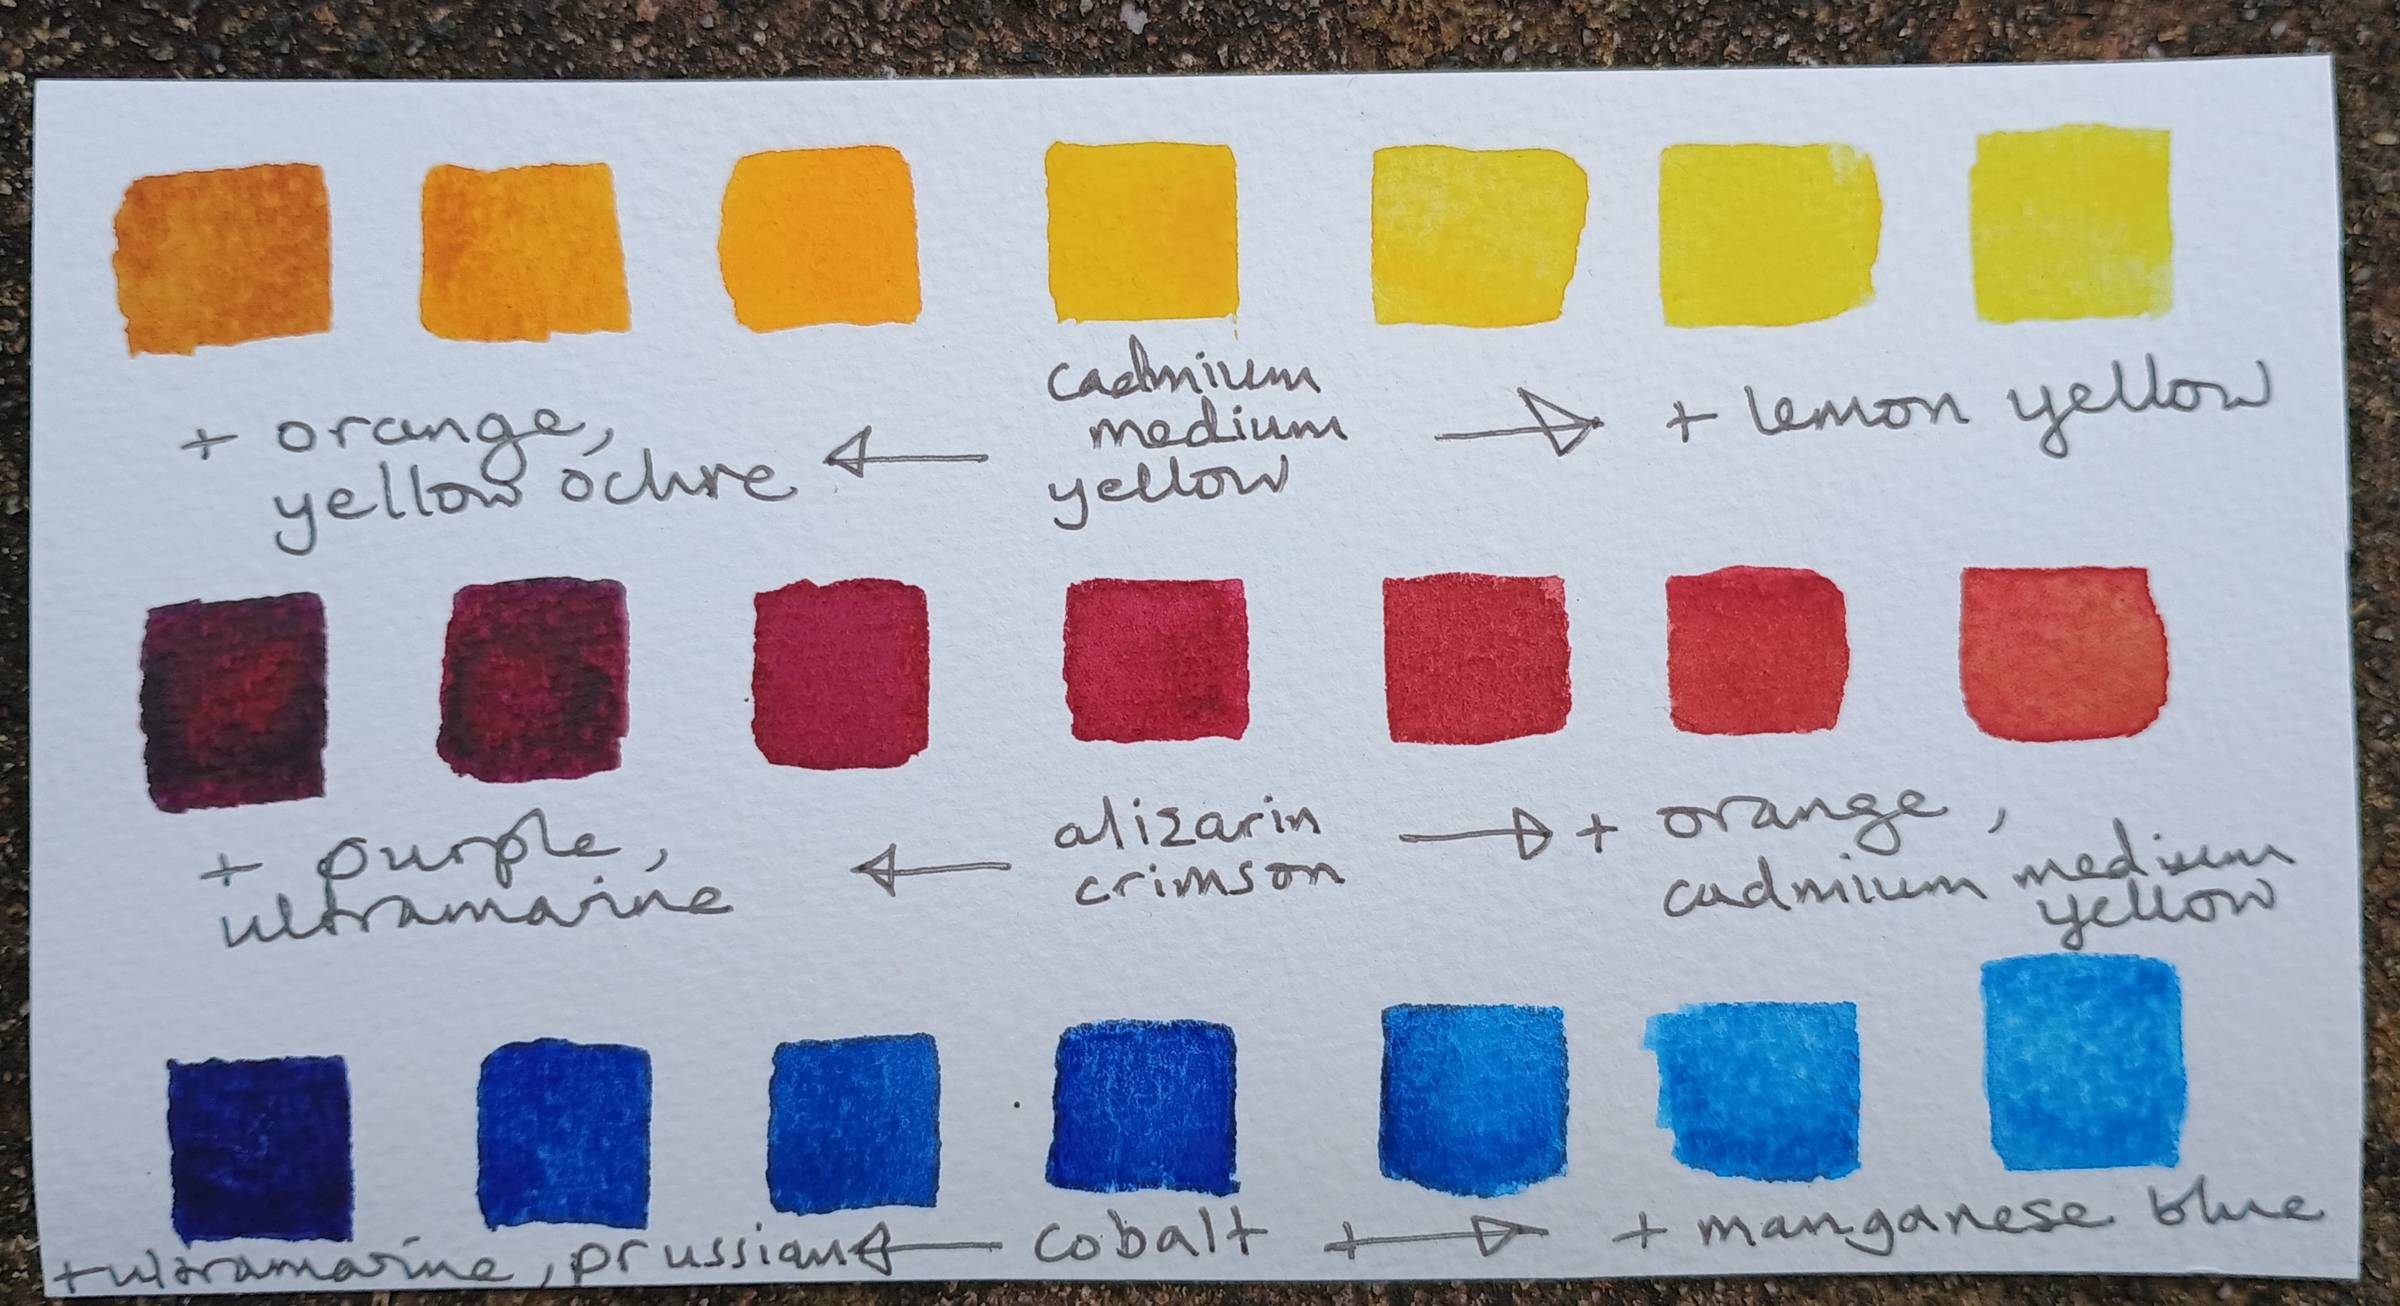 + orange,
yellow ochre
cadmium
medium
yellow
+ lemon yellow
+ purple,
ultramarine
alizarin
crimson
+ orange,
cadmium medium
yellow
+ultramarine, prussian
cobalt
+
+ manganese blue